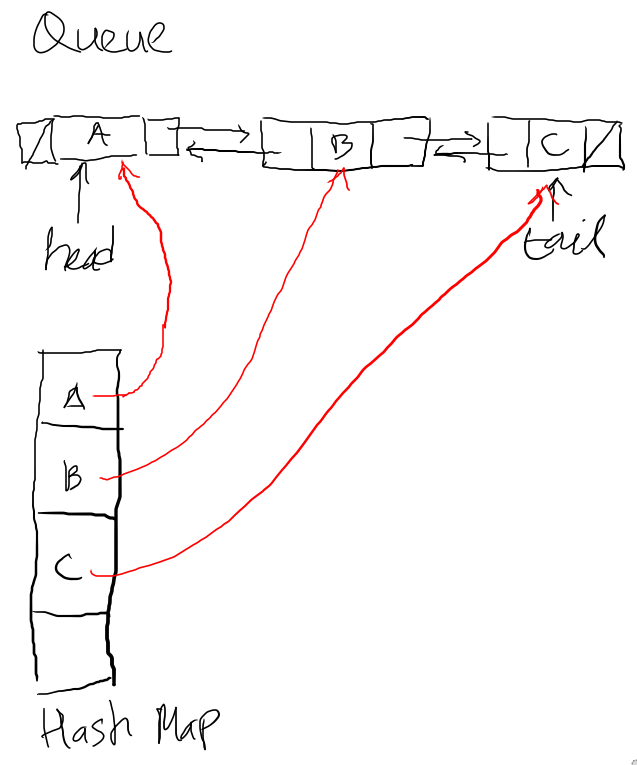 Queue
A B C
head tail
A
B
C
Hash Map